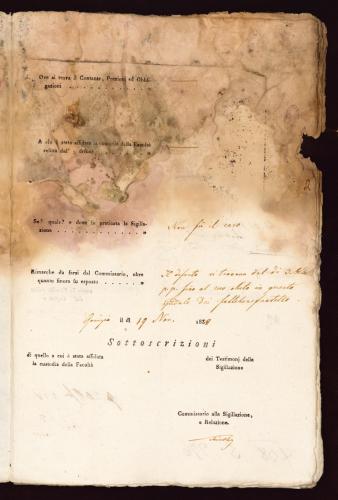 Ove si trova il Contante, Preziosi ed Obbli-
gazioni . . . . . . . . . . . . . . „
A chi è stata affidata la custodia della Facoltà
relitta dal defunto . . . . . . . . . „
Se? quale? e dove fu praticata la Sigilla-
zione . . . . . . . . . . . . . . „
Non fù il caso
Rimarche da farsi dal Commissario, oltre
quanto finora fu esposto . . . . . . „
Il defunto si trovava dal dì 3
p. p. fino al suo obito in questo
li 19 Nov. 1838
Sottoscrizioni
di quello a cui è stata affidata
la custodia della Facoltà
dei Testimonj della
Sigillazione
Commissario alla Sigillazione,
e Relazione.